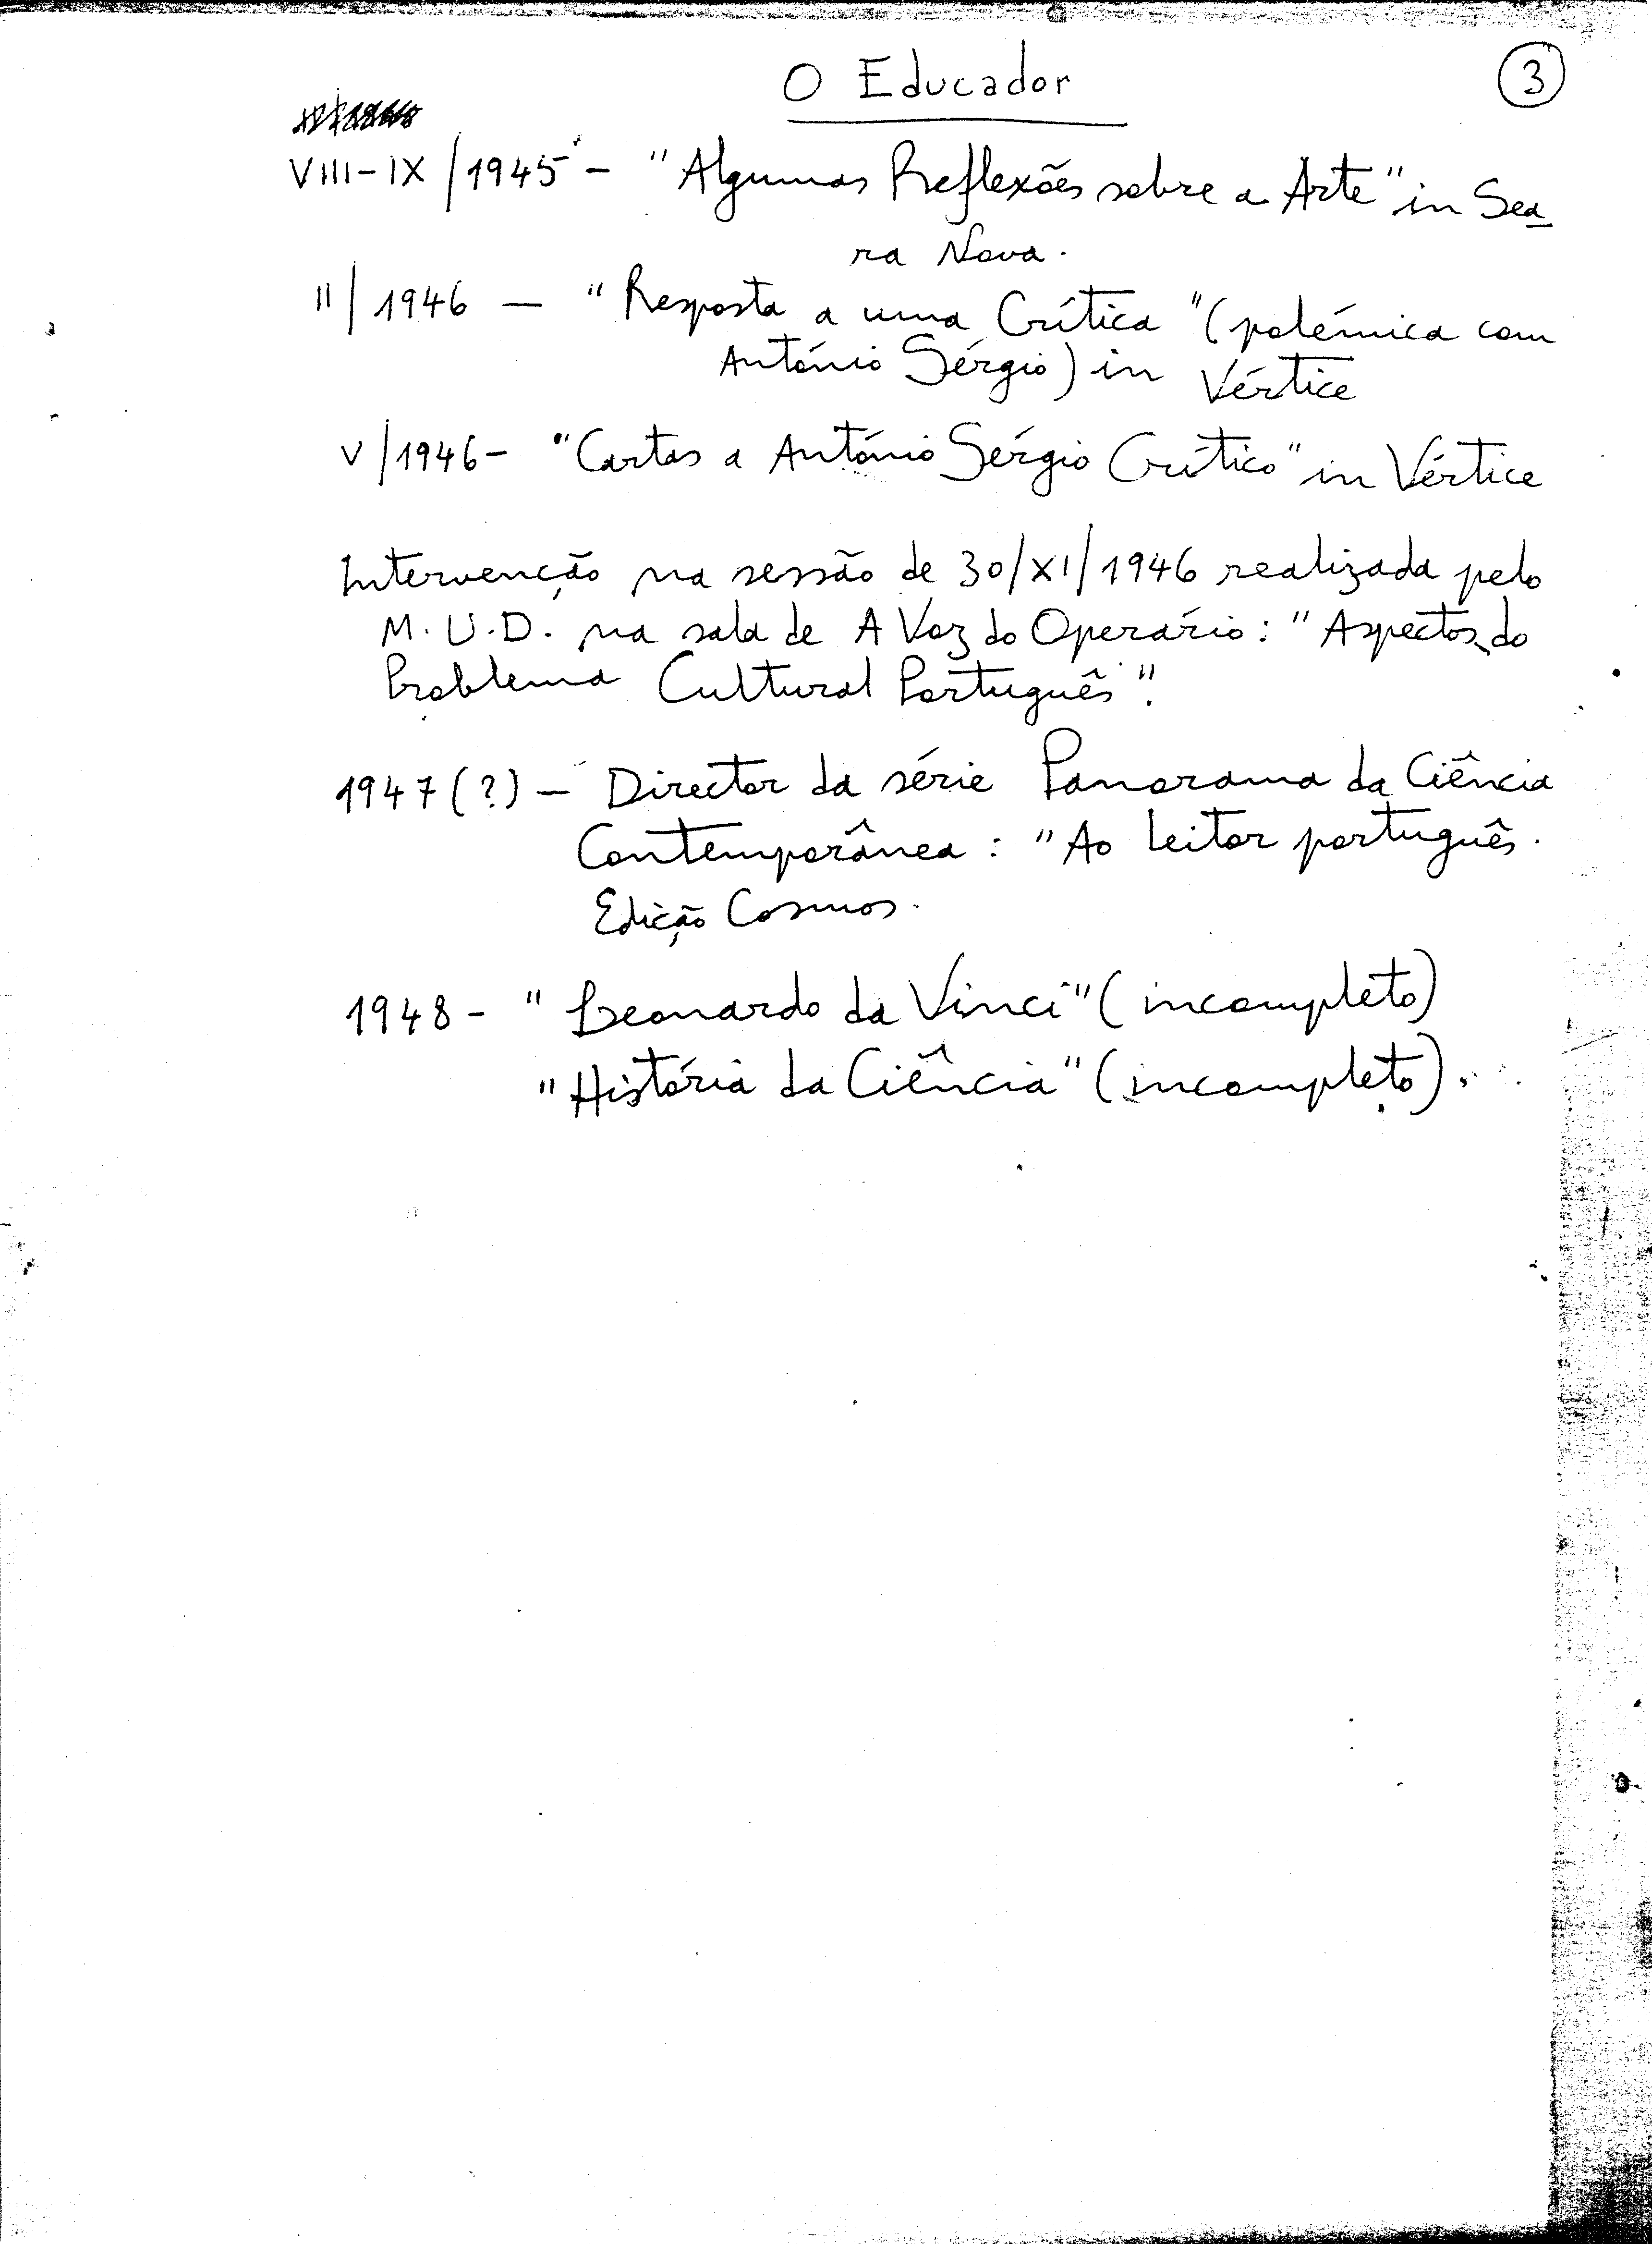 O Educador
3
VIII-IX/1945 - "Algumas Reflexões sobre a Arte" in Sea
ra Nova.
II/1946 — "Resposta a uma Crítica" (polémica com
António Sérgio) in Vértice
V/1946 - "Cartas a António Sérgio Crítico" in Vértice
Intervenção na sessão de 30/XI/1946 realizada pelo
M.U.D. na sala de A Voz do Operário: "Aspectos do
Problema Cultural Português".
1947(?) — Director da série Panorama da Ciência
Contemporânea: "Ao leitor português.
Edição Cosmos.
1948 - "Leonardo da Vinci" (incompleto)
"História da Ciência" (incompleto).